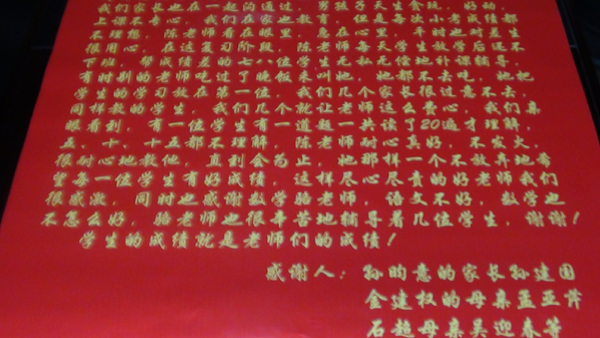 我们家长也在一起沟通过，男孩子天生贪玩，好动，
上课不专心，我们在家也教育，但是每次小考成绩都
不理想，陈老师看在眼里，急在心里，平时也对差生
很用心，在这复习阶段，陈老师每天学生放学后还不
下班，帮成绩差的七八位学生无私无偿地补课辅导，
有时别的老师吃过了晚饭来叫她，她都不去吃，她把
学生的学习放在第一位，我们几个家长很过意不去，
同样教的学生，我们几个就让老师这么费心，我们亲
眼看到，有一位学生有一道题一共读了20遍才理解，
五、十、十五都不理解，陈老师耐心真好，不发火，
很耐心地教他，直到会为止，她那样一个不放弃地希
望每一位学生有好成绩，这样尽心尽责的好老师我们
很感激，同时也感谢数学骆老师，语文不好，数学也
不怎么好，骆老师也很辛苦地辅导着几位学生，谢谢！
学生的成绩就是老师们的成绩！
感谢人：孙昀意的家长孙建国
金建权的母亲孟亚芹
石超母亲吴迎春等